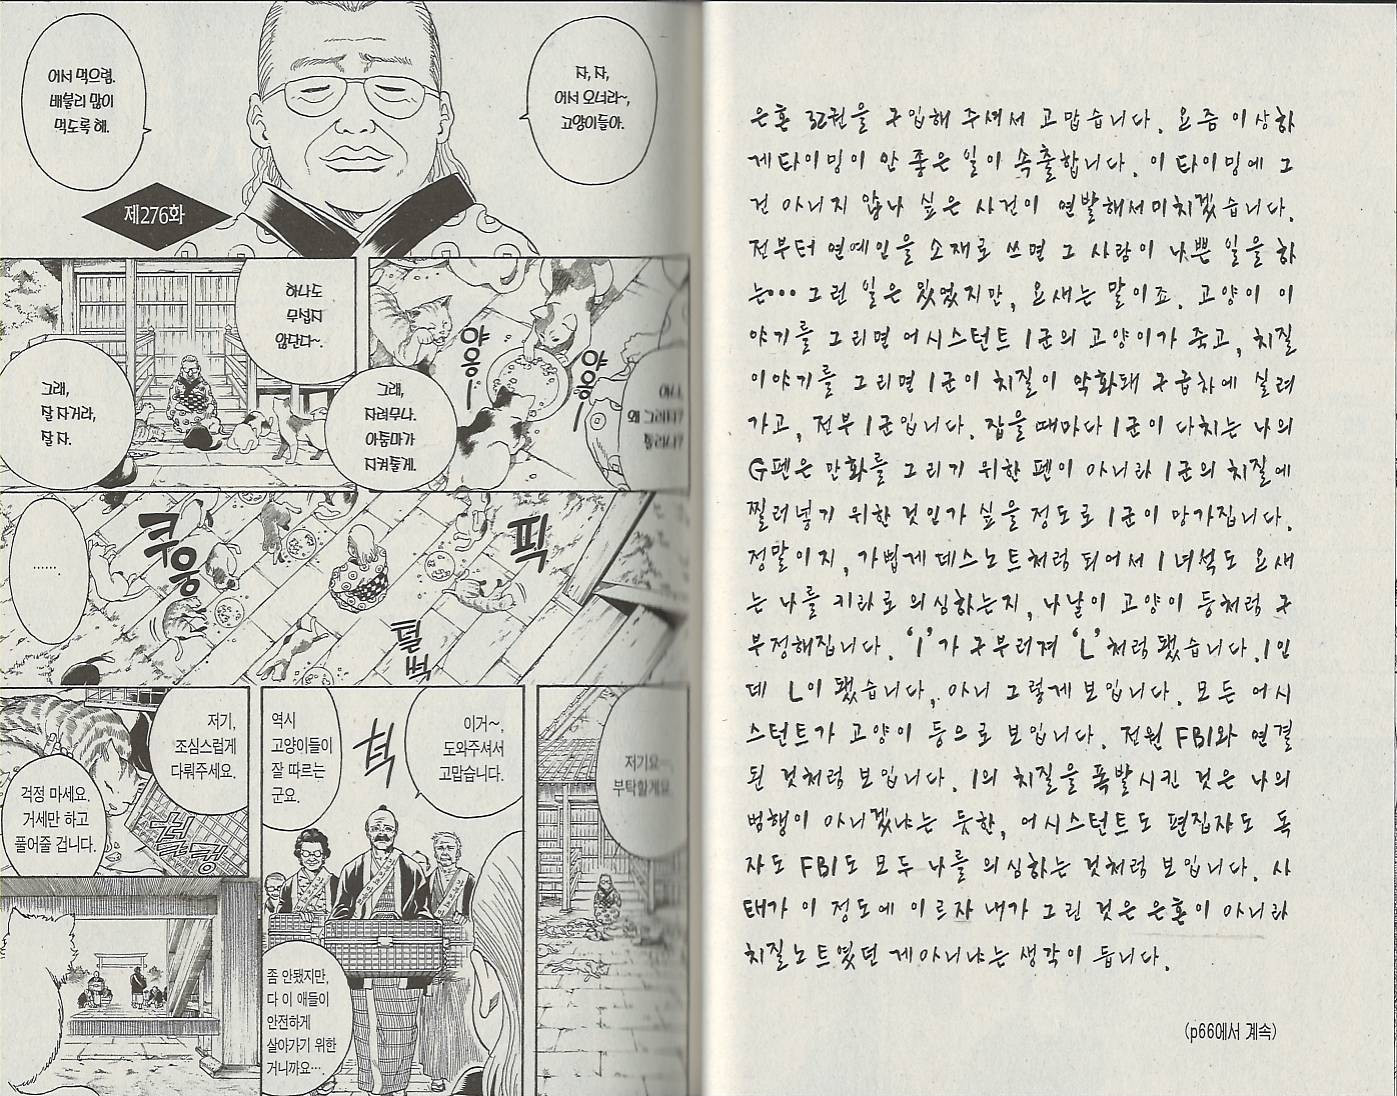 자, 자,
어서 오너라~,
고양이들아.
어서 먹으렴.
배불리 많이
먹도록 해.
제276화
야옹―
야옹―
어머,
왜 그러니?
졸리니?
하나도
무섭지
않단다~.
그래,
자려무나.
아줌마가
지켜줄게.
그래,
잘 자거라,
잘 자.
픽
털썩
쿠웅
……
저기요…,
부탁할게요.
이거~,
도와주셔서
고맙습니다.
척
역시
고양이들이
잘 따르는
군요.
좀 안됐지만,
다 이 애들이
안전하게
살아가기 위한
거니까요….
저기,
조심스럽게
다뤄주세요.
걱정 마세요.
거세만 하고
풀어줄 겁니다.
덜컹
은혼 32권을 구입해 주셔서 고맙습니다. 요즘 이상하
게 타이밍이 안 좋은 일이 속출합니다. 이 타이밍에 그
건 아니지 않나 싶은 사건이 연발해서 미치겠습니다.
전부터 연예인을 소재로 쓰면 그 사람이 나쁜 일을 하
는… 그런 일은 있었지만, 요새는 말이죠. 고양이 이
야기를 그리면 어시스턴트 I군의 고양이가 죽고, 치질
이야기를 그리면 I군이 치질이 악화돼 구급차에 실려
가고, 전부 I군입니다. 잡을 때마다 I군이 다치는 나의
G펜은 만화를 그리기 위한 펜이 아니라 I군의 치질에
찔러넣기 위한 것인가 싶을 정도로 I군이 망가집니다.
정말이지, 가볍게 데스노트처럼 되어서 I 녀석도 요새
는 나를 키라로 의심하는지, 나날이 고양이 등처럼 구
부정해집니다. 'I'가 구부러져 'L'처럼 됐습니다. I인
데 L이 됐습니다, 아니 그렇게 보입니다. 모든 어시
스턴트가 고양이 등으로 보입니다. 전원 FBI와 연결
된 것처럼 보입니다. I의 치질을 폭발시킨 것은 나의
범행이 아니겠냐는 듯한, 어시스턴트도 편집자도 독
자도 FBI도 모두 나를 의심하는 것처럼 보입니다. 사
태가 이 정도에 이르자 내가 그린 것은 은혼이 아니라
치질노트였던 게 아니냐는 생각이 듭니다.
(p66에서 계속)